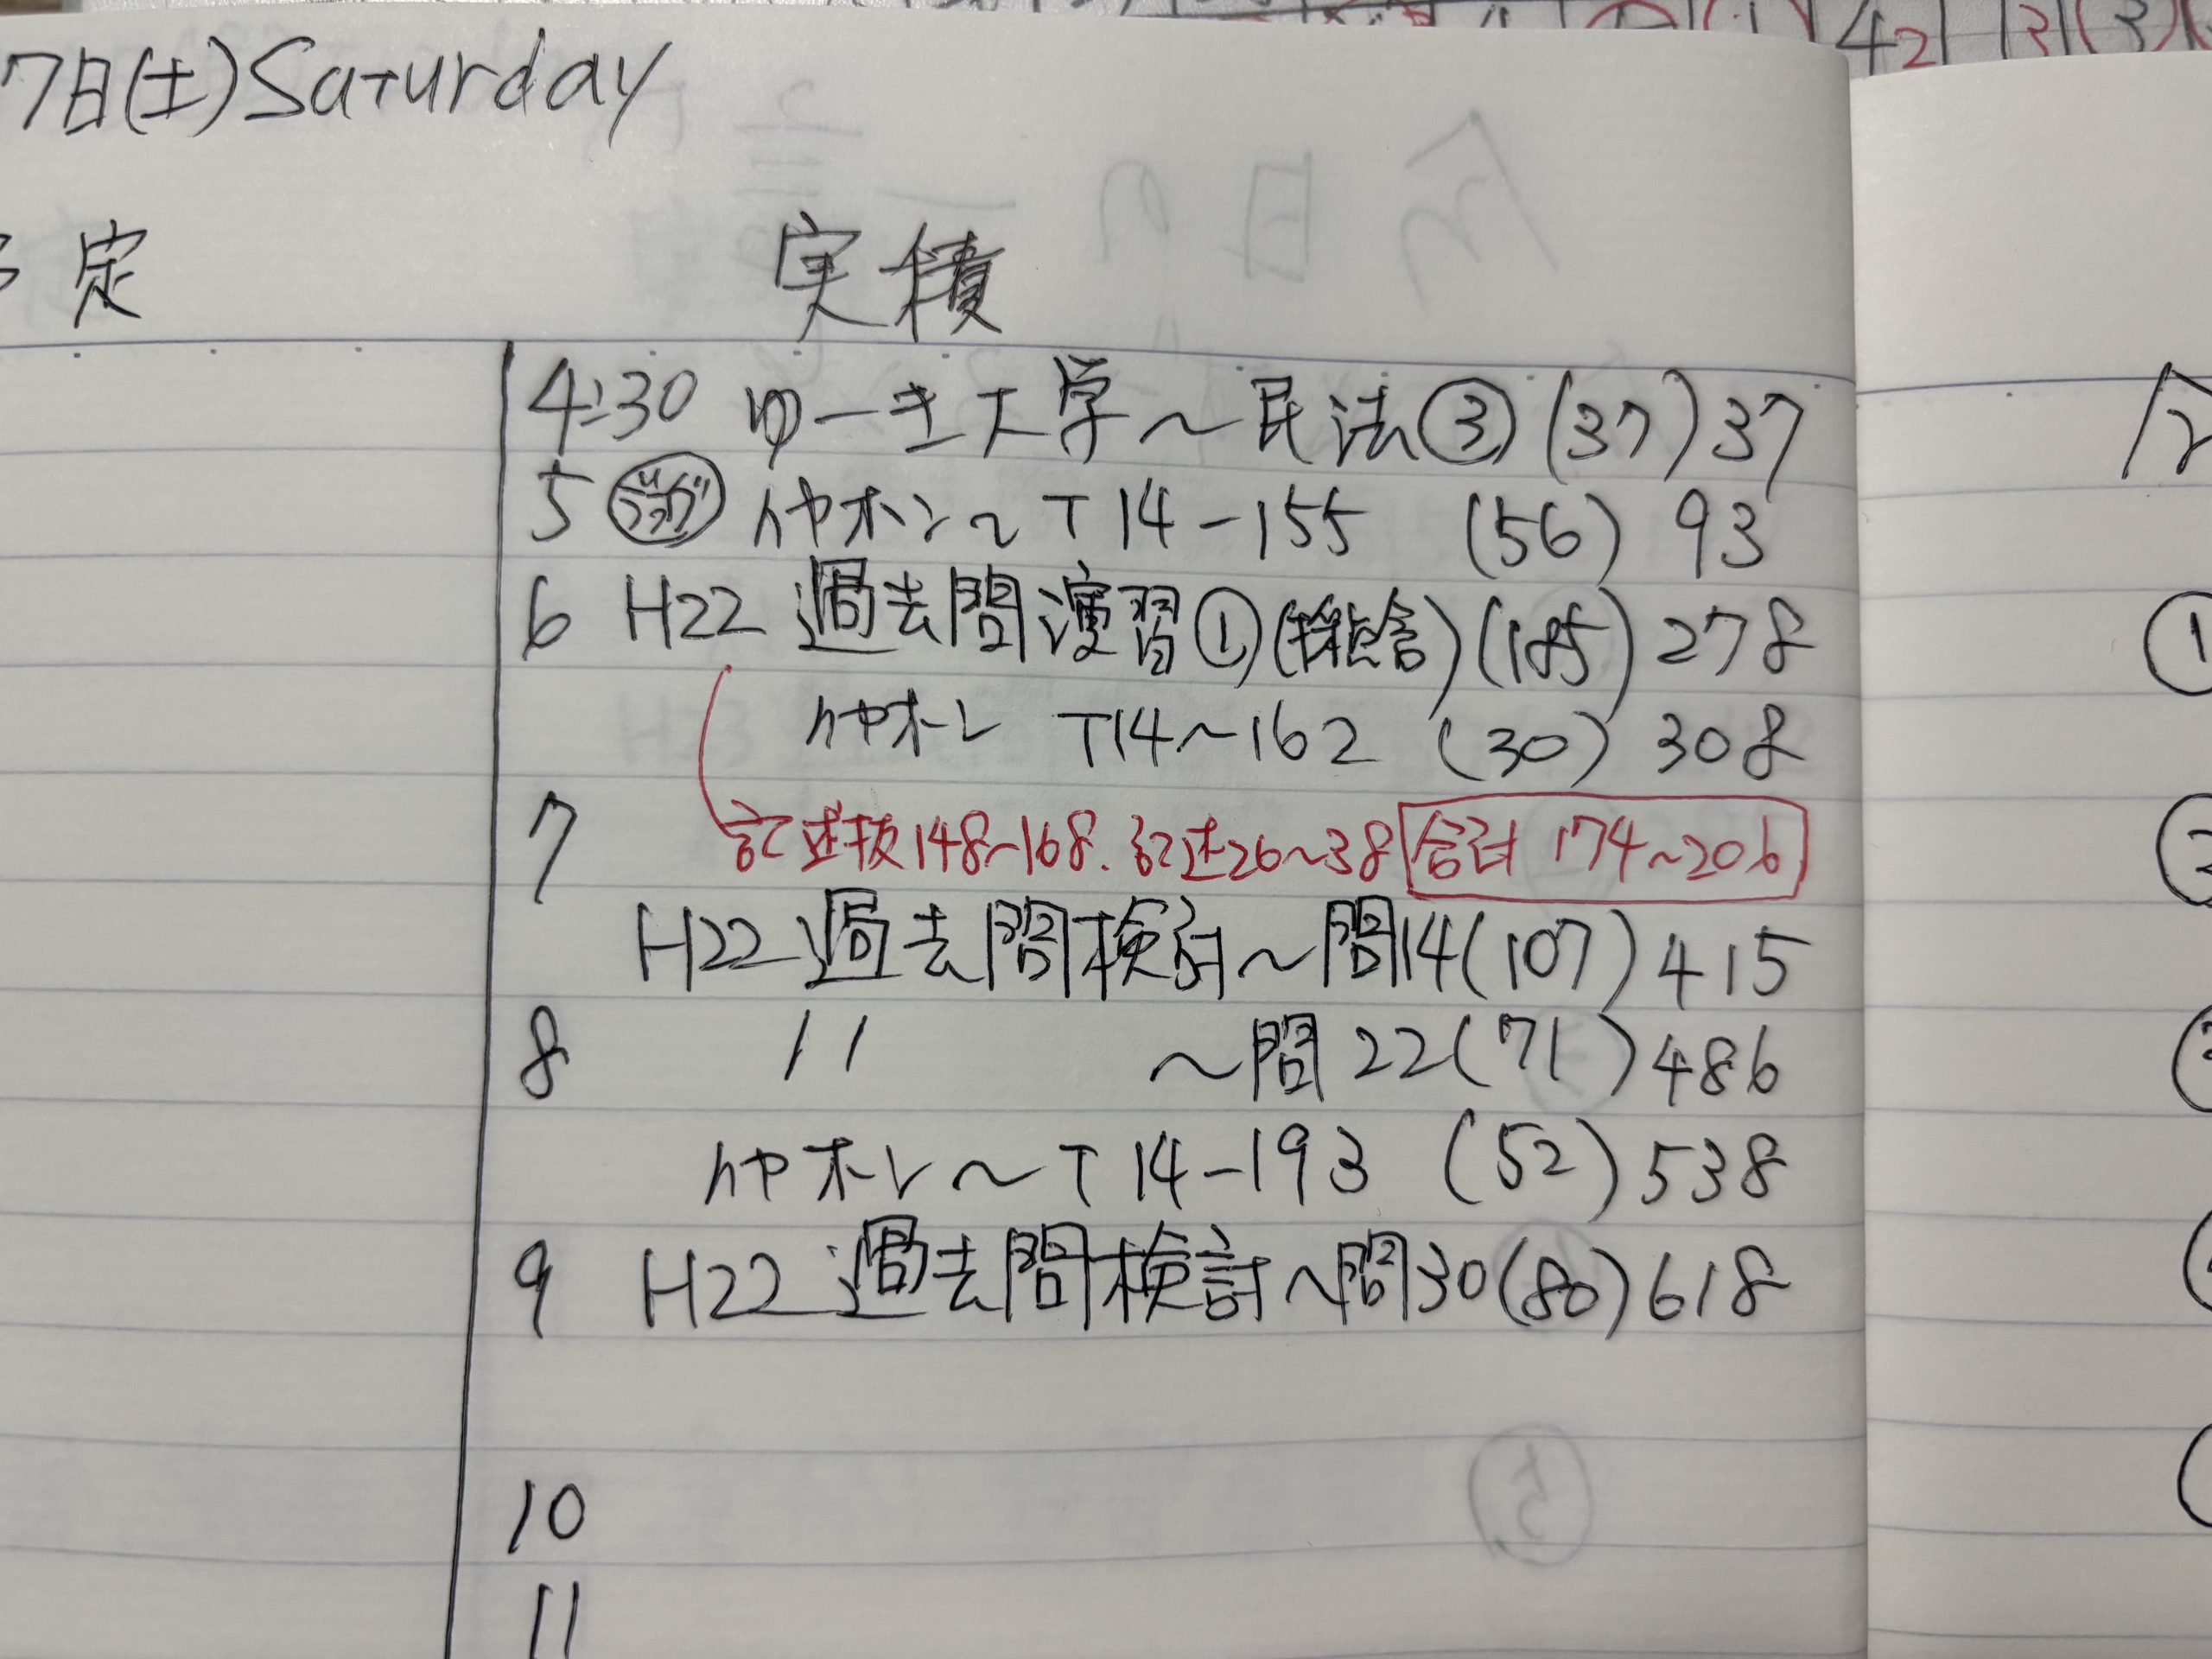 42 3 (3)
7日(土) Saturday
予定 実積
4:30 ゆーき大学〜民法③ (37) 37
5 イヤホン〜T14-155 (56) 93
6 H22 過去問演習① (採点含) (185) 278
イヤホン T14〜162 (30) 308
7 記述抜148〜168. 記述26〜38 合計 174〜206
H22 過去問検討〜問14 (107) 415
8 〃 〜問22 (71) 486
イヤホン〜T14-193 (52) 538
9 H22 過去問検討〜問30 (80) 618
10
11
①
②